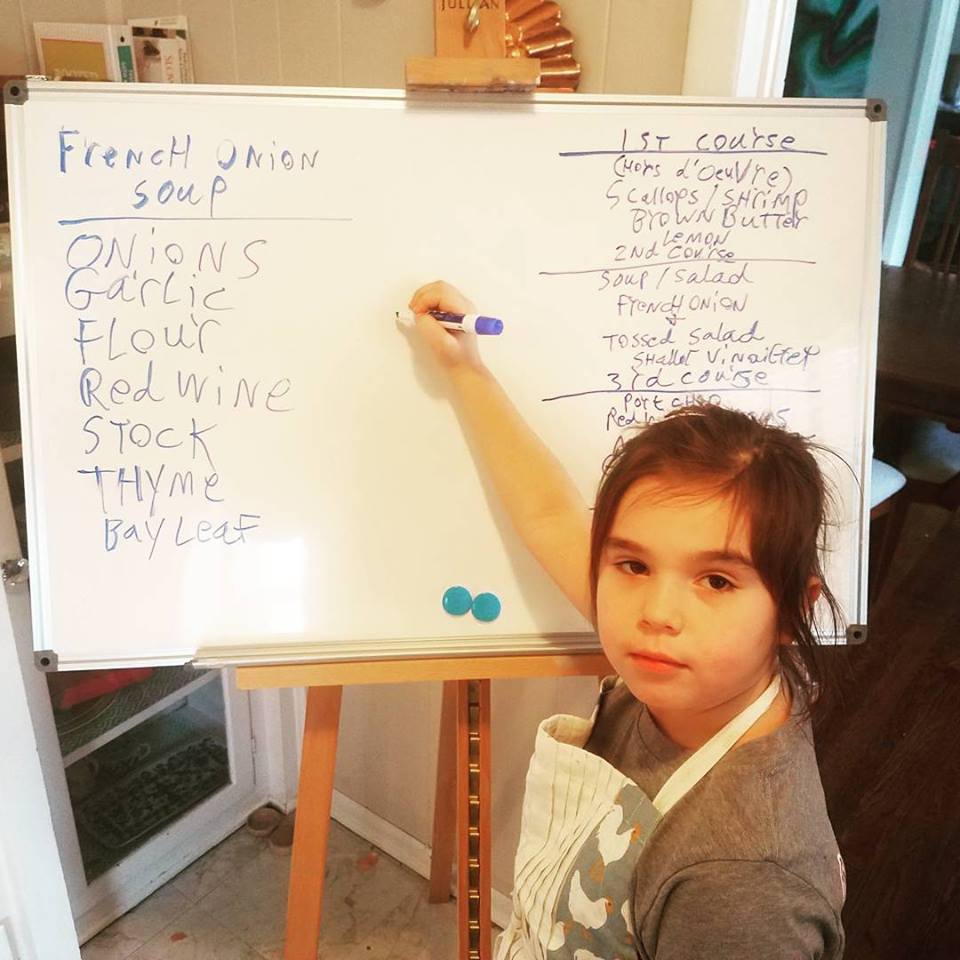 JULIAN
FrencH ONion
soup
ONioNS
GarLic
FLour
Red WiNe
STOCK
THyme
BAy LeaF
1ST course
(Hors d'oeuVre)
Scallops/SHrimp
BROWN BUTTer
LeMON
2ND course
soup/salad
FrencH ONioN
Tossed salad
SHallot
3rd course